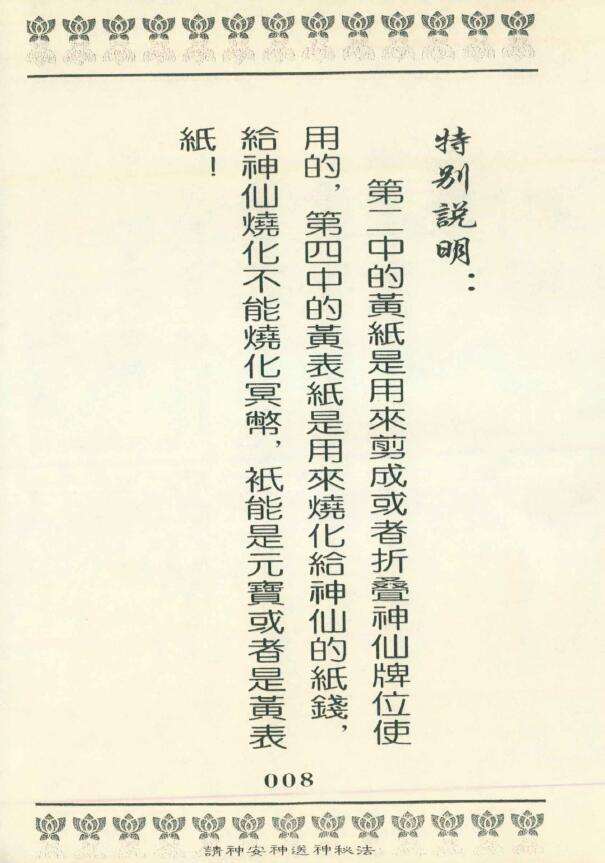 特别説明：
第二中的黃紙是用來剪成或者折叠神仙牌位使
用的，第四中的黃表紙是用來燒化給神仙的紙錢，
給神仙燒化不能燒化冥幣，衹能是元寶或者是黃表
紙！
008
請神安神送神秘法